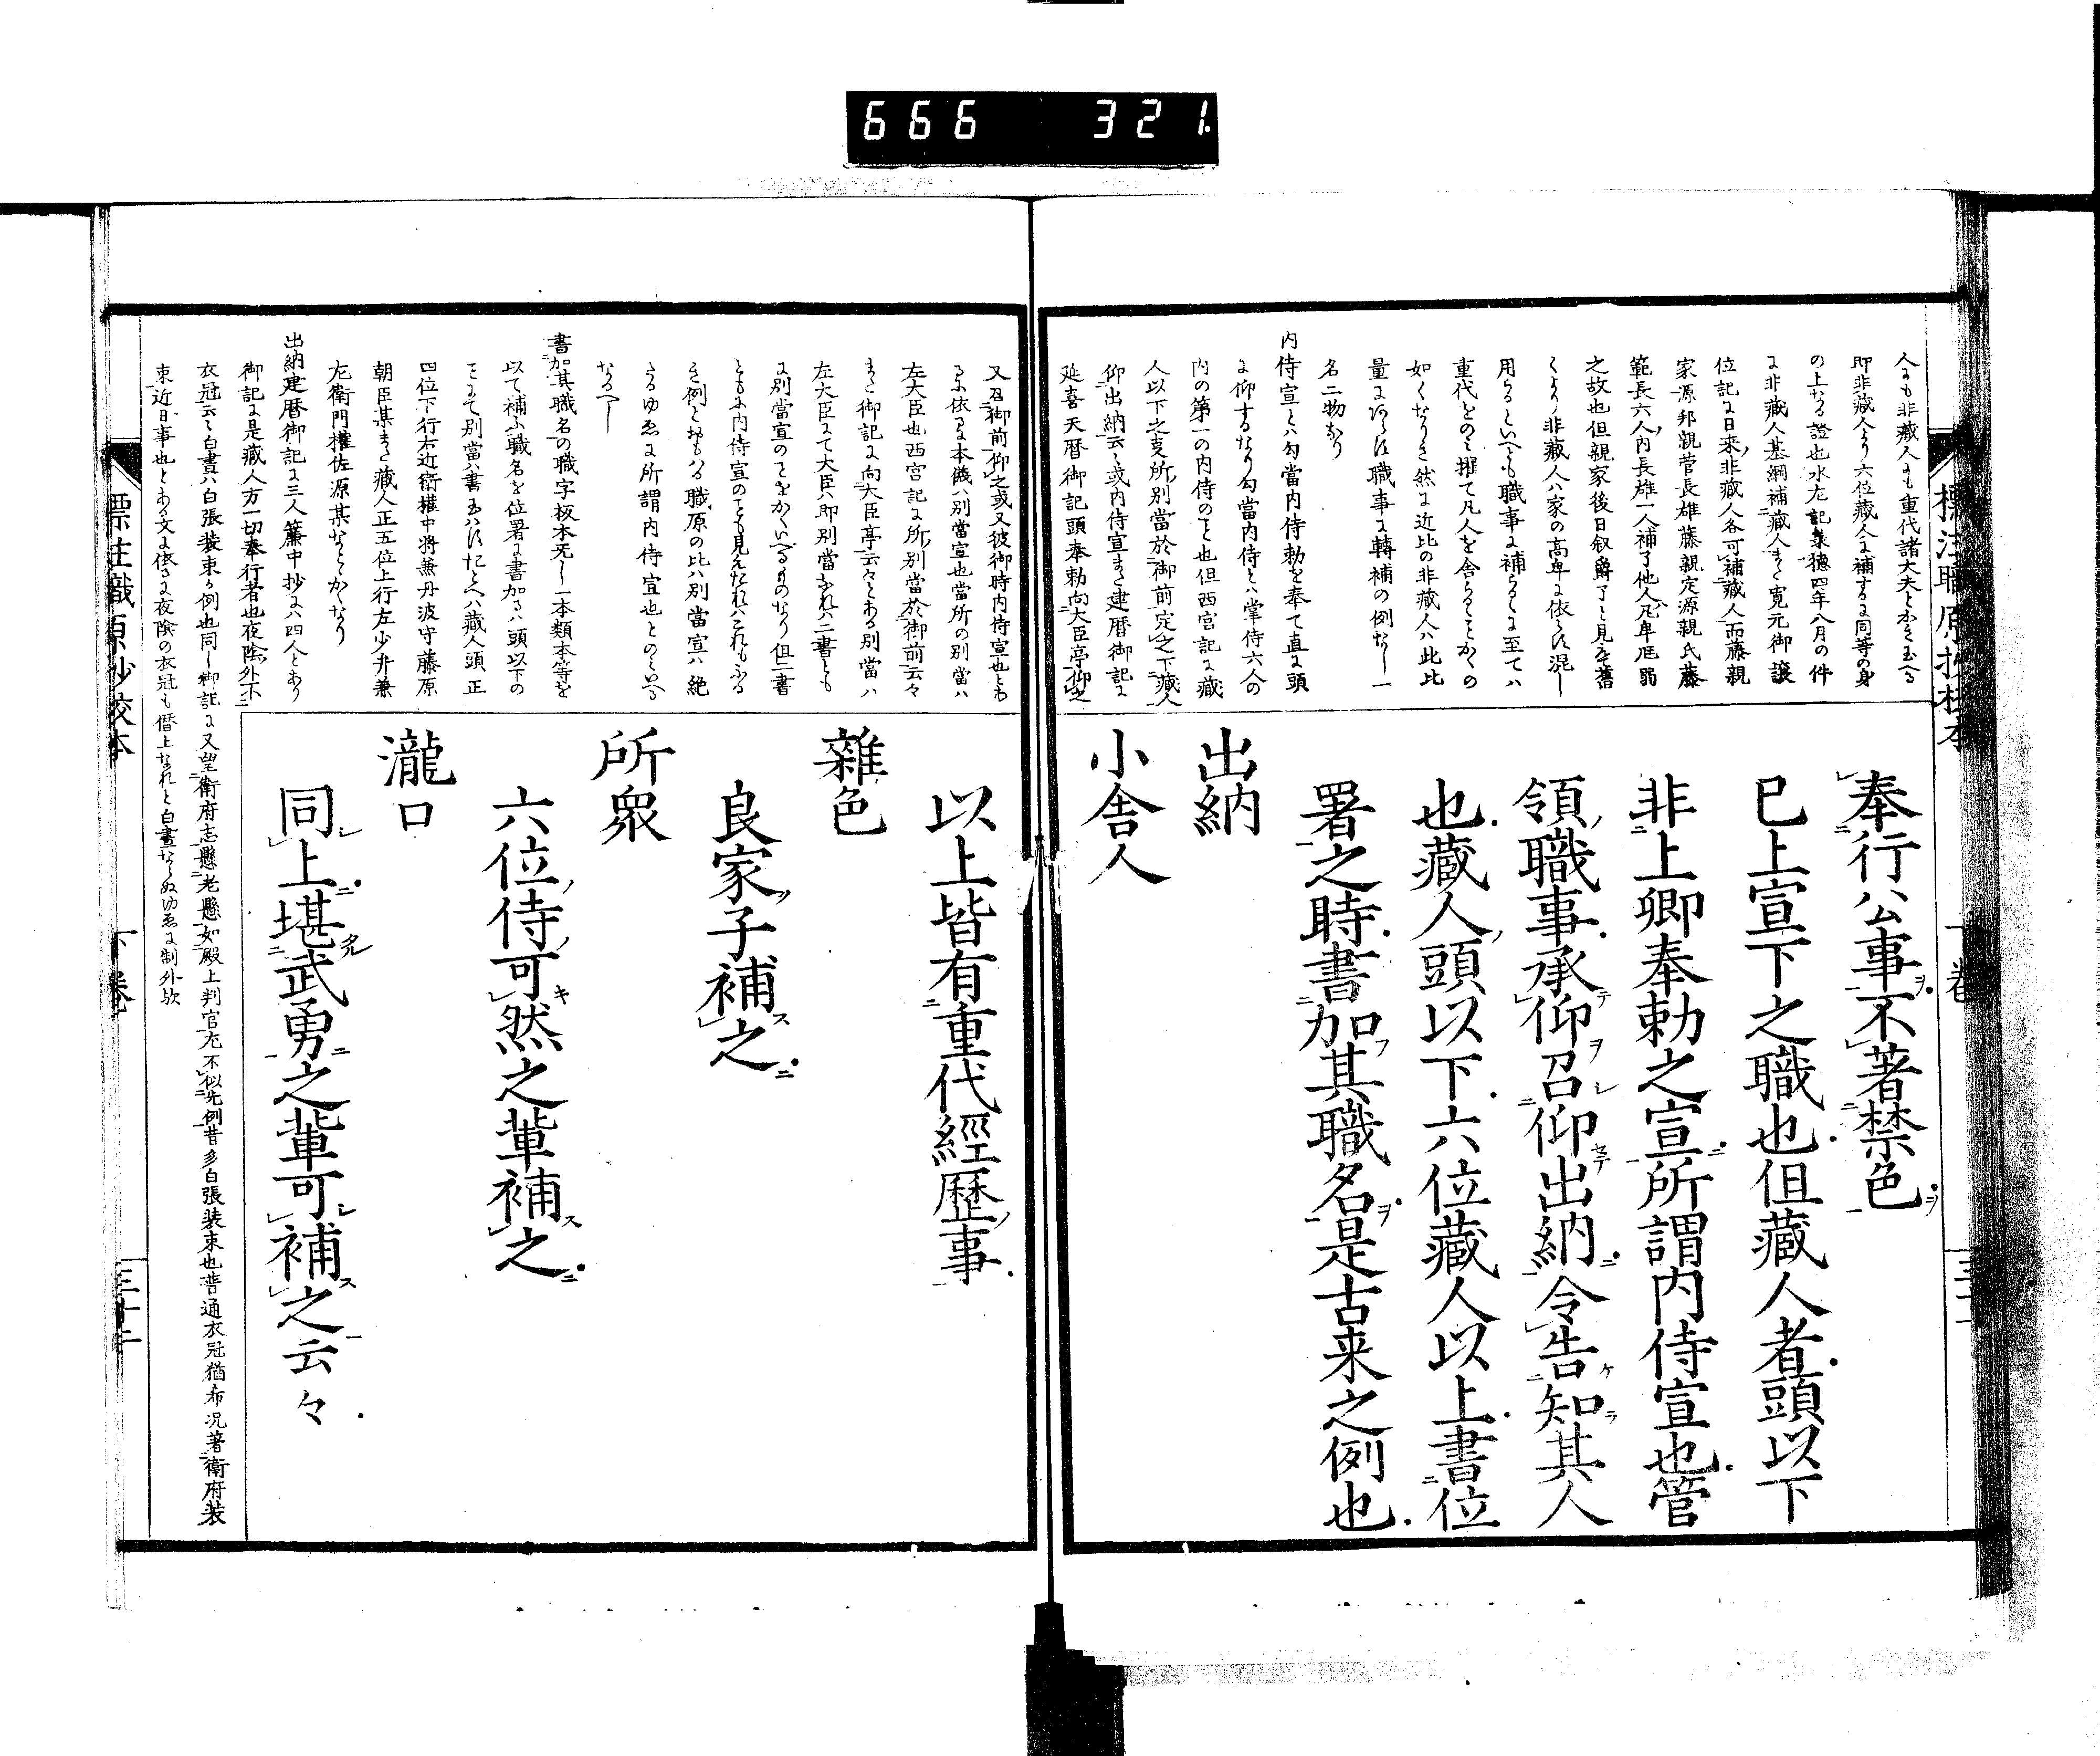 666 321
標注職原抄校本
下巻
人にも非蔵人にも重代諸大夫とかき玉へる
即非蔵人より六位蔵人に補するに同等の身
の上なる證也水左記承徳四年八月の件
に非蔵人基綱補蔵人また寛元御譲
位記に日来非蔵人各可補蔵人而藤親
家源邦親菅長雄藤親定源親氏藤
範長六人内長雄一人補了他人凡卑尩弱
之故也但親家後日叙爵了と見ゆ舊
くより非蔵人ハ家の高卑に依らす混し
用るといへとも職事に補らるゝに至てハ
重代をのミ擢て凡人を舎らるゝことかくの
如くなりき然に近比の非蔵人ハ此比
量にあらす職事に轉補の例なし一
名二物なり
内侍宣とハ勾當内侍勅を奉て直に頭
に仰するなり勾當内侍とハ掌侍六人の
内の第一の内侍のこと也但西宮記に蔵
人以下之支所別當於御前定之下蔵人
仰出納云々或内侍宣また建暦御記に
延喜天暦御記頭奉勅向大臣亭仰之
奉行公事ヲ不著禁色ヲ
已上宣下之職也但藏人者頭以下
非上卿奉勅之宣ニ所謂内侍宣也管
領ノ職事承テ仰ヲ召シ仰セテ出納ニ令告ケ知ラ其人
也藏人ノ頭以下六位藏人以上書位
署之時書加フ其職名ヲ是古来之例也
出納
小舎人
又召御前仰之或又彼御時内侍宣也とあ
るに依るに本儀ハ別當宣也當所の別當ハ
左大臣也西宮記に所別當於御前云々
また御記に向大臣亭云々とある別當ハ
左大臣にて大臣ハ即別當なれハ二書とも
に別當宣のことをかくいへるものなり但二書
ともに内侍宣のことも見えたれハこれもふる
き例とおもハる職原の比ハ別當宣ハ絶
たるゆゑに所謂内侍宣也とのミいへる
なるへし
書加其職名の職字板本无し一本類本等を
以て補ふ職名を位署に書加るハ頭以下の
ミにて別當ハ書玉ハすたとへハ蔵人頭正
四位下行右近衛權中将兼丹波守藤原
朝臣某また蔵人正五位上行左少弁兼
左衛門權佐源某なとゝかくなり
出納建暦御記に三人簾中抄にハ四人とあり
御記に是蔵人方一切奉行者也夜陰外不
衣冠云々白晝ハ白張装束か例也同し御記に又望衛府志懸老懸如殿上判官尤不似先例昔多白張装束也普通衣冠猶布况著衛府装
束近日事也とある文に依るに夜陰の衣冠も僭上なれと白晝ならぬゆゑに制外欤
以上皆有重代經歴ノ事
雜色
良家ノ子補ス之ニ
所衆
六位ノ侍ノ可キ然之輩補ス之ニ
瀧口
同上ニ堪タル武勇ニ之輩可シ補ス之云々
標注職原抄校本
下巻
三十二